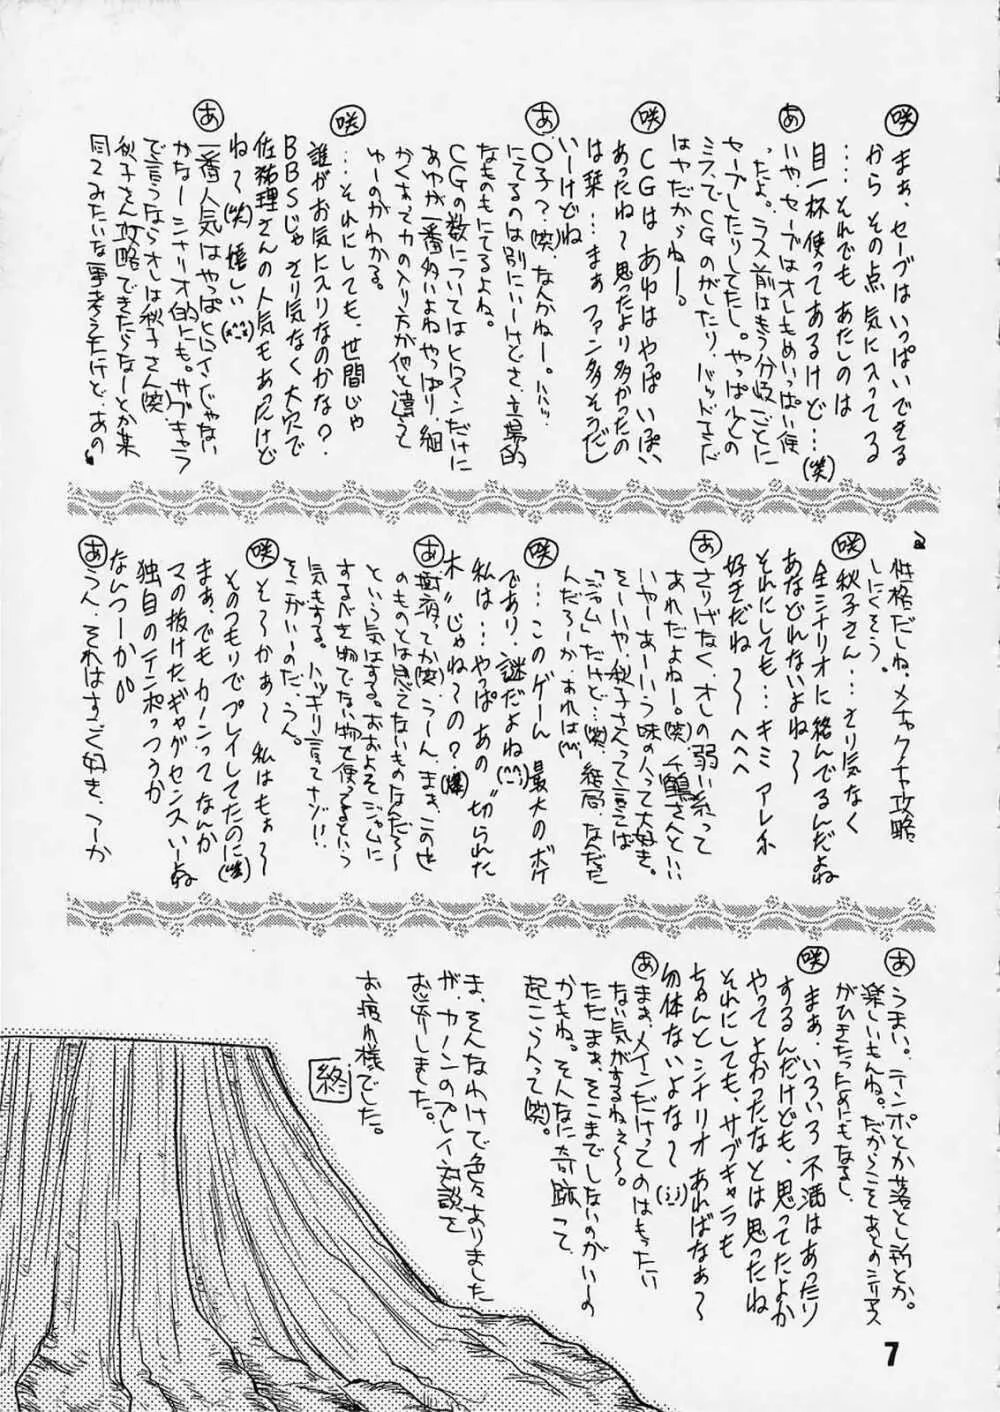 咲 まぁ、セーブはいっぱいできる
からその点気に入ってる
…それでもあたしのは
目一杯使ってあるけど…(笑)
あ いやセーブはオレもめいっぱい使
ったよ。ラス前はもう分岐ごとに
セーブしたりしてたし。やっぱ少しの
ミスでCGのがしたり、バッドエンド
はやだからねー。
咲 CGはあゆはやっぱいっぱい
あったね〜思ったより多かったの
は栞…まぁファン多そうだし
いーけどね
あ ○子？(笑)、なんかねー。ハハッ
にてるのは別にいーけどさ、立場的
なものもにてるよね。
CGの数についてはヒロインだけに
あゆが一番多いよねやっぱり、細
かくまで力の入り方が他と違う
ゆーのがわかる。
咲 …それにしても、世間じゃ
誰がお気に入りなのかな？
BBSじゃさり気なく大穴で
佐祐理さんの人気もあったけど
ね〜(笑)嬉しい(^^)
あ 一番人気はやっぱヒロインじゃない
かなーシナリオ的にも。サブキャラ
で言うならオレは秋子さん(笑)
秋子さん攻略できたらなーとか某
同てみたいな事考えたけど、あの
性格だしね、メチャクチャ攻略
しにくそう。
咲 秋子さん…さり気なく
全シナリオに絡んでるんだよね
あなどれないよね〜
それにしても…キミアレ系
好きだね〜へへへ
あ さりげなく、オレの弱い系って
あれだよねー。(笑)、千鶴さんといい
いやーあーいう味の人って大好き。
そーいや、秋子さんって言えば
「ジャム」だけど…(笑)、結局、なんだ
んだろーか、あれは(^^;)
咲 …このゲーム最大のボケ
であり、謎だよね(^^;)
私は…やっぱあの“切られた
木”じゃね〜の？(爆)
あ 樹液ってか(笑)、うーん、まぁ、この世
のものとは思えないものなんだろー
という気はする。おおよそジャムに
するべき物でない物を使ってるという
気もする。ハッキリ言ってナゾ!!
そこがいーのだ、うん。
咲 そ〜かあ〜私はもぉ〜
そのつもりでプレイしてたのに(笑)
まぁ、でもカノンってなんか
マの抜けたギャグセンスいーよね
独自のテンポっつうか
なんつーか
あ うん、それはすごく好き、つーか
あ うまい。テンポとか落とし所とか。
楽しいもんね。だからこそあとのシリアス
がひきたつためにもなるし
咲 まぁ、いろいろ不満はあったり
するんだけども、思ってたよか
やってよかったなとは思ったね
それにしても、サブキャラも
ちゃんとシナリオあればなぁ〜
勿体ないよな〜(;_;)
あ まぁ、メインだけってのはもったい
ない気がするねぇ〜。
ただまぁ、そこまでしないのがいーの
かもね。そんなに奇跡って
起こらんって(笑)。
ま、そんなわけで色々ありました
が、カノンのプレイ対談を
お送りしました。
お疲れ様でした。
終
7